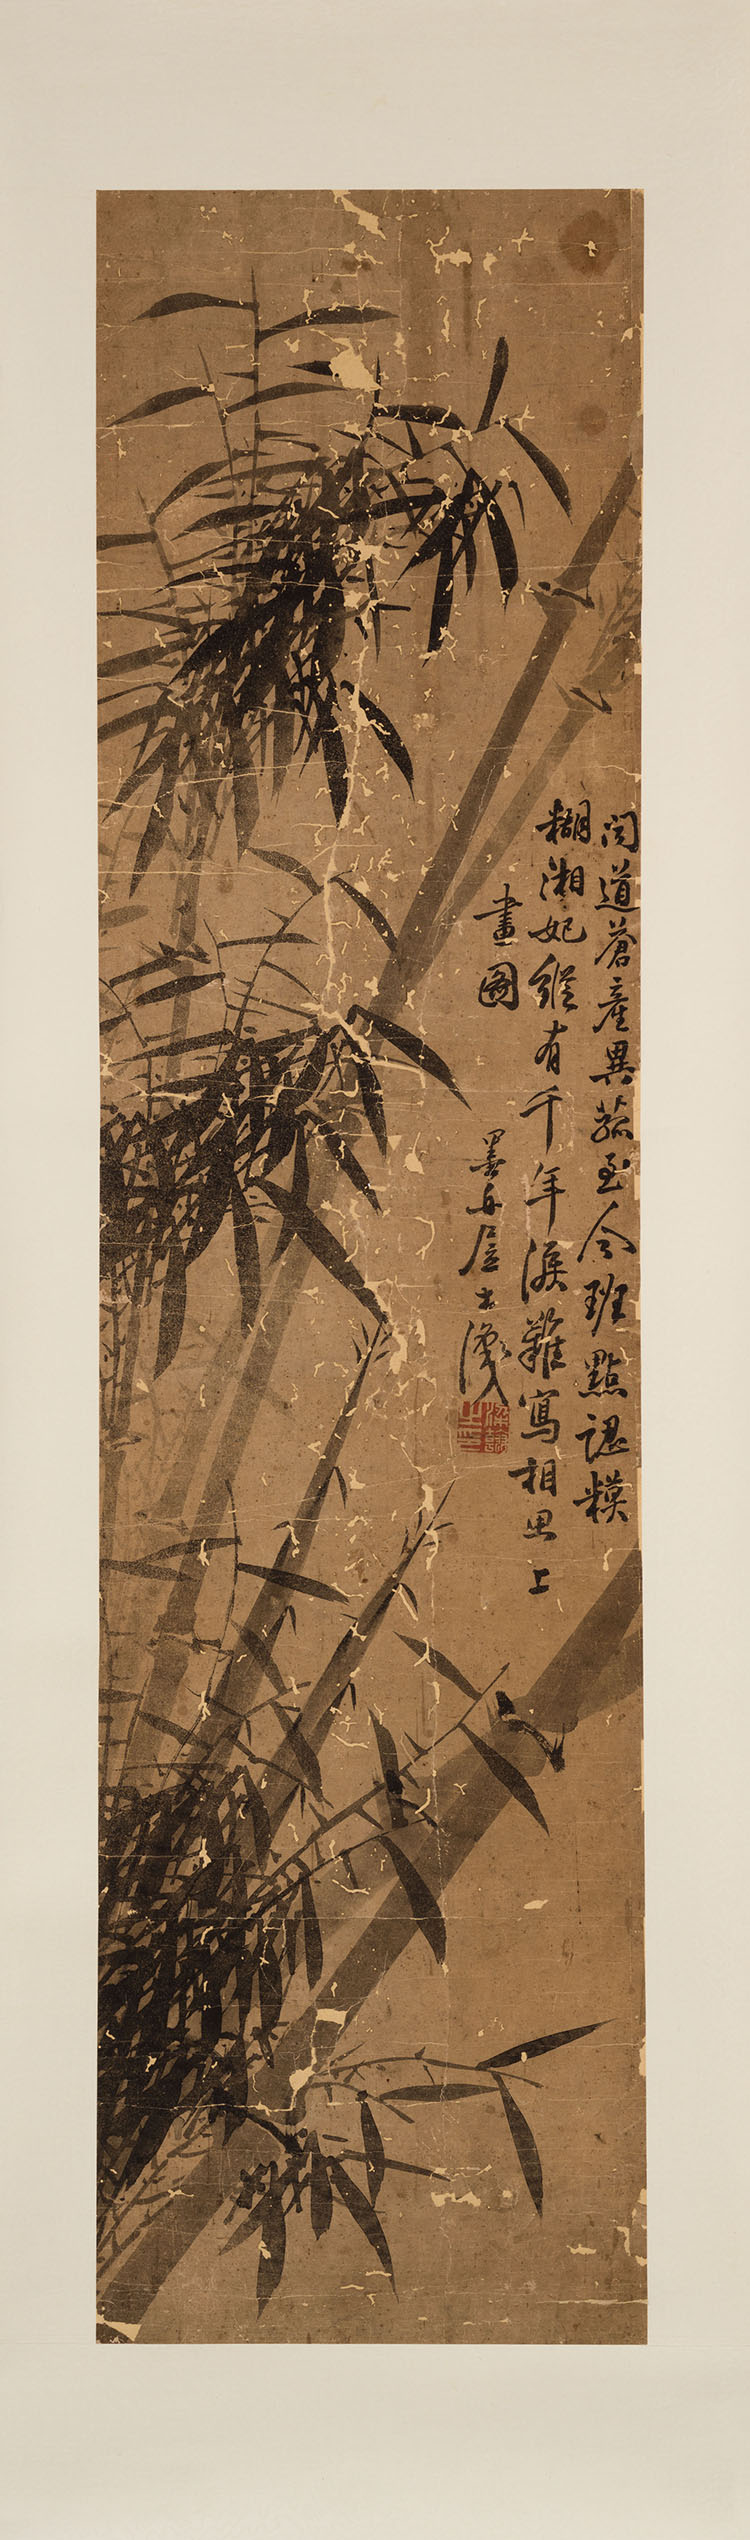 聞道蒼產異菰至今班點認糢
糊湘妃縱有千年淚難寫相思上
畫圖
墨舟居士